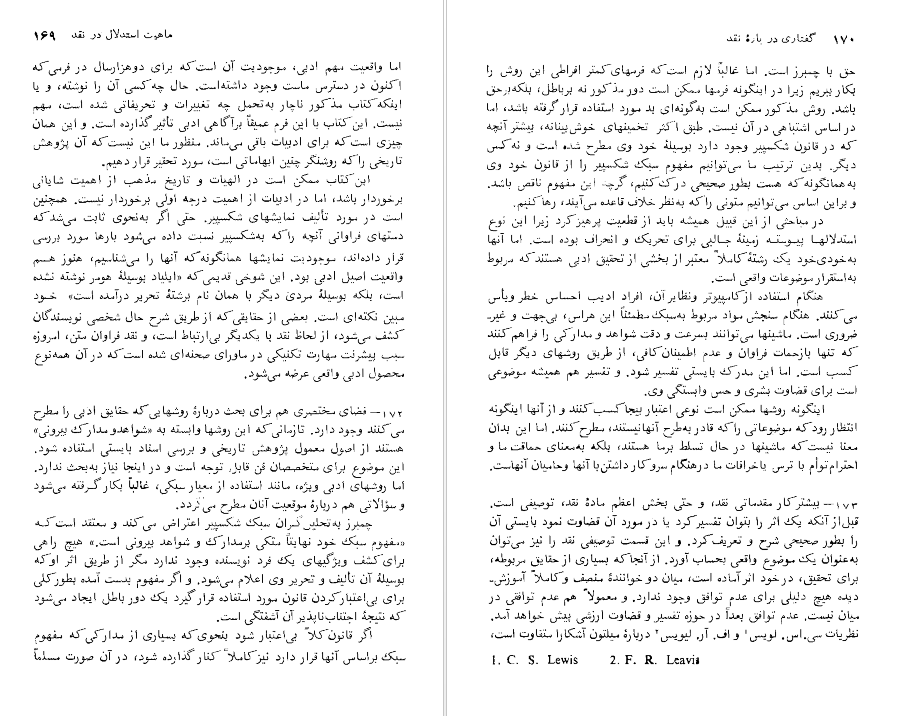 ماهیت استدلال در نقد ۱۶۹
اما واقعیت مهم ادبی، موجودیت آن است که برای دوهزارسال در فرمی که
اکنون در دسترس ماست وجود داشته‌است. حال چه‌کسی آن را نوشته، و یا
اینکه کتاب مذکور ناچار به‌تحمل چه تغییرات و تحریفاتی شده است، مهم
نیست. این کتاب با این فرم عمیقاً برآگاهی ادبی تأثیر گذارده است. و این همان
چیزی است که برای ادبیات باقی می‌ماند. منظور ما این نیست که آن پژوهش
تاریخی را که روشنگر چنین ابهاماتی است، مورد تحقیر قرار دهیم.
این کتاب ممکن است در الهیات و تاریخ مذهب از اهمیت شایانی
برخوردار باشد، اما در ادبیات از اهمیت درجه اولی برخوردار نیست. همچنین
است در مورد تألیف نمایشهای شکسپیر. حتی اگر به‌نحوی ثابت می‌شد که
دستهای فراوانی آنچه را که به‌شکسپیر نسبت داده می‌شود بارها مورد بررسی
قرار داده‌اند، موجودیت نمایشها همانگونه که آنها را می‌شناسیم، هنوز هم
واقعیت اصیل ادبی بود. این شوخی قدیمی که «ایلیاد بوسیلهٔ هومر نوشته نشده
است، بلکه بوسیلهٔ مردی دیگر با همان نام برشتهٔ تحریر درآمده است» خود
مبین نکته‌ای است. بعضی از حقایقی که از طریق شرح حال شخصی نویسندگان
کشف می‌شود، از لحاظ نقد با یکدیگر بی‌ارتباط است، و نقد فراوان متن، امروزه
سبب پیشرفت مهارت تکنیکی در ماورای صحنه‌ای شده است که در آن همه‌نوع
محصول ادبی واقعی عرضه می‌شود.
۱۷۲– فضای مختصری هم برای بحث دربارهٔ روشهایی که حقایق ادبی را مطرح
می‌کنند وجود دارد. تازمانی که این روشها وابسته به «شواهدو مدارک بیرونی»
هستند از اصول معمول پژوهش تاریخی و بررسی اسناد بایستی استفاده شود.
این موضوع برای متخصصان فن قابل توجه است و در اینجا نیاز به‌بحث ندارد.
اما روشهای ادبی ویژه، مانند استفاده از معیار سبکی، غالباً بکار گرفته می‌شود
و سؤالاتی هم دربارهٔ موقعیت آنان مطرح می‌گردد.
چمبرز به‌تحلیل‌گران سبک شکسپیر اعتراض می‌کند و معتقد است که
«مفهوم سبک خود نهایتاً متکی برمدارک و شواهد بیرونی است.» هیچ راهی
برای کشف ویژگیهای یک فرد نویسنده وجود ندارد مگر از طریق اثر او که
بوسیلهٔ آن تألیف و تحریر وی اعلام می‌شود. و اگر مفهوم بدست آمده بطورکلی
برای بی‌اعتبارکردن قانون مورد استفاده قرار گیرد یک دور باطل ایجاد می‌شود
که نتیجهٔ اجتناب‌ناپذیر آن آشفتگی است.
اگر قانون کلاً بی‌اعتبار شود بنحوی که بسیاری از مدارکی که مفهوم
سبک براساس آنها قرار دارد نیز کاملاً کنار گذارده شود، در آن صورت مسلماً
۱۷۰ گفتاری در بارهٔ نقد
حق با چمبرز است. اما غالباً لازم است که فرمهای کمتر افراطی این روش را
بکار بریم زیرا در اینگونه فرمها ممکن است دور مذکور نه برباطل، بلکه‌برحق
باشد. روش مذکور ممکن است به‌گونه‌ای بد مورد استفاده قرار گرفته باشد، اما
در اساس اشتباهی در آن نیست. طبق اکثر تخمینهای خوش‌بینانه، بیشتر آنچه
که در قانون شکسپیر وجود دارد بوسیلهٔ خود وی مطرح شده است و نه کس
دیگر. بدین ترتیب ما می‌توانیم مفهوم سبک شکسپیر را از قانون خود وی
به‌همانگونه که هست بطور صحیحی درک کنیم، گرچه این مفهوم ناقص باشد.
و براین اساس می‌توانیم متونی را که به‌نظر خلاف قاعده می‌آیند، رها کنیم.
در مباحثی از این قبیل همیشه باید از قطعیت پرهیز کرد زیرا این نوع
استدلالها پیوسته زمینهٔ جالبی برای تحریک و انحراف بوده است. اما آنها
به‌خودی‌خود یک رشتهٔ کاملاً معتبر از بخشی از تحقیق ادبی هستند که مربوط
به‌استقرار موضوعات واقعی است.
هنگام استفاده از کامپیوتر ونظایر آن، افراد ادیب احساس خطر ویأس
می‌کنند. هنگام سنجش مواد مربوط به‌سبک مطمئناً این هراس، بی‌جهت و غیر‌-
ضروری است. ماشینها می‌توانند بسرعت و دقت شواهد و مدارکی را فراهم کنند
که تنها بازحمات فراوان و عدم اطمینان کافی، از طریق روشهای دیگر قابل
کسب است. اما این مدرک بایستی تفسیر شود. و تفسیر هم همیشه موضوعی
است برای قضاوت بشری و حس وابستگی وی.
اینگونه روشها ممکن است نوعی اعتبار بیجا کسب کنند و از آنها اینگونه
انتظار رود که موضوعاتی را که قادر به‌طرح آنهانیستند، مطرح کنند. اما این بدان
معنا نیست که ماشینها در حال تسلط برما هستند، بلکه به‌معنای حماقت ما و
احترام توأم با ترس یاخرافات ما درهنگام سروکار داشتن‌با آنها وحامیان آنهاست.
۱۷۳– بیشتر کار مقدماتی نقد، و حتی بخش اعظم مادهٔ نقد، توصیفی است.
قبل از آنکه یک اثر را بتوان تفسیر کرد یا در مورد آن قضاوت نمود بایستی آن
را بطور صحیحی شرح و تعریف کرد. و این قسمت توصیفی نقد را نیز می‌توان
به‌عنوان یک موضوع واقعی بحساب آورد. از آنجا که بسیاری از حقایق مربوطه،
برای تحقیق، در خود اثر آماده است، میان دو خوانندهٔ منصف و کاملاً آموزش‌-
دیده هیچ دلیلی برای عدم توافق وجود ندارد. و معمولاً هم عدم توافقی در
میان نیست. عدم توافق بعداً در حوزه تفسیر و قضاوت ارزشی پیش خواهد آمد.
نظریات سی.اس. لویس۱ و اف. آر. لیویس۲ دربارهٔ میلتون آشکارا متفاوت است،
1. C. S. Lewis 2. F. R. Leavis